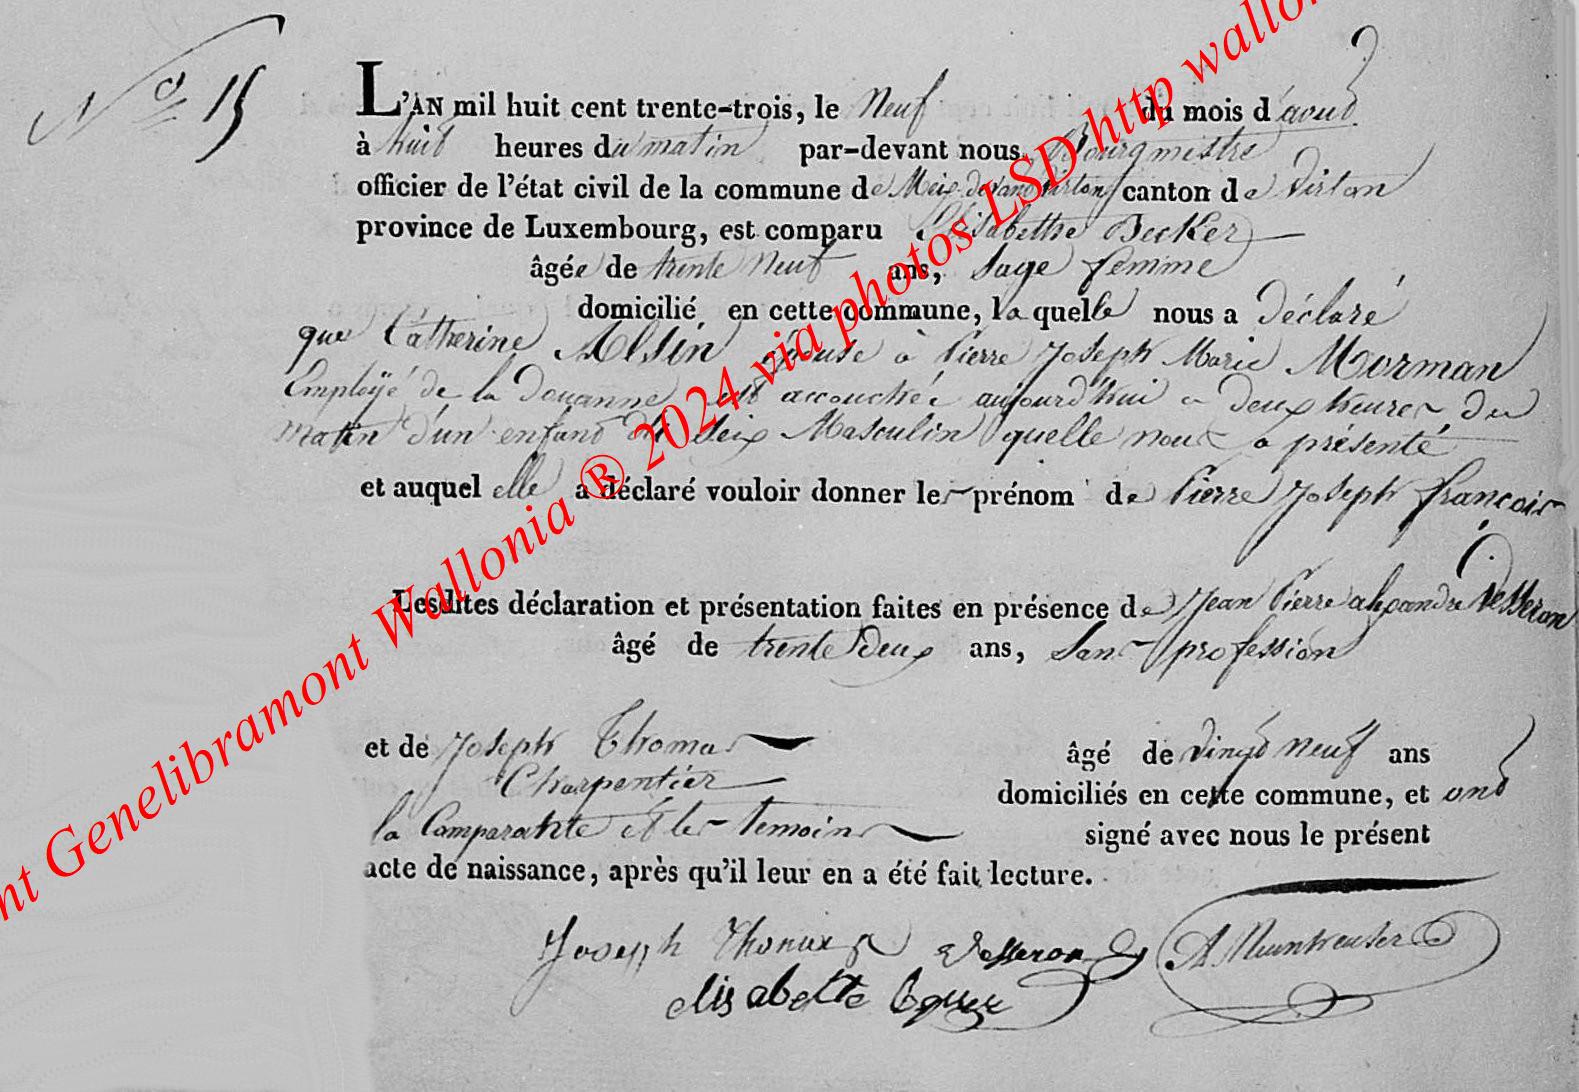 N° 15
L'AN mil huit cent trente-trois, le Neuf du mois d'aoud
à huit heures du matin par-devant nous Bourgmestre
officier de l'état civil de la commune de Meix devant Virton canton de Virton
province de Luxembourg, est comparu Elisabethe Becker
âgée de trente Neuf ans, Sage femme
domicilié en cette commune, la quelle nous a Déclaré
que Catherine Alsin épouse à Pierre Joseph Marie Morman
Employé de la Douanne est accouchée aujourd'hui a Deux heures du
matin d'un enfand du Seix Masculin quelle nous a présenté
et auquel elle a déclaré vouloir donner les prénom de Pierre Joseph françois
Lesdites déclaration et présentation faites en présence de Jean Pierre alexandre Vesseron
âgé de trente Deux ans, Sans profession
et de Joseph Thomas âgé de vingd Neuf ans
Charpentier domiciliés en cette commune, et ond
la Comparante et les temoins signé avec nous le présent
acte de naissance, après qu'il leur en a été fait lecture.
Joseph Thomas Vesseron
elisabette
nt Genelibramont Wallonia ® 2024 via photos LSD http wallon